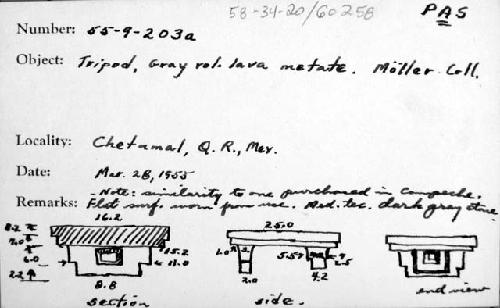 58-34-20/60258
PAS
Number: 55-9-203a
Object: Tripod, Gray vol. lava metate. Möller Coll.
Locality: Chetumal, Q.R., Mex.
Date: Mar. 28, 1955
Remarks: Note: similarity to one purchased in Campeche.
Flat surf. worn from use. Med. tec. dark gray stone
16.2
25.0
8.2
2.0
6.0
2.2
8.8
5.5
2.5
2.0
4.2
section
side.
end view